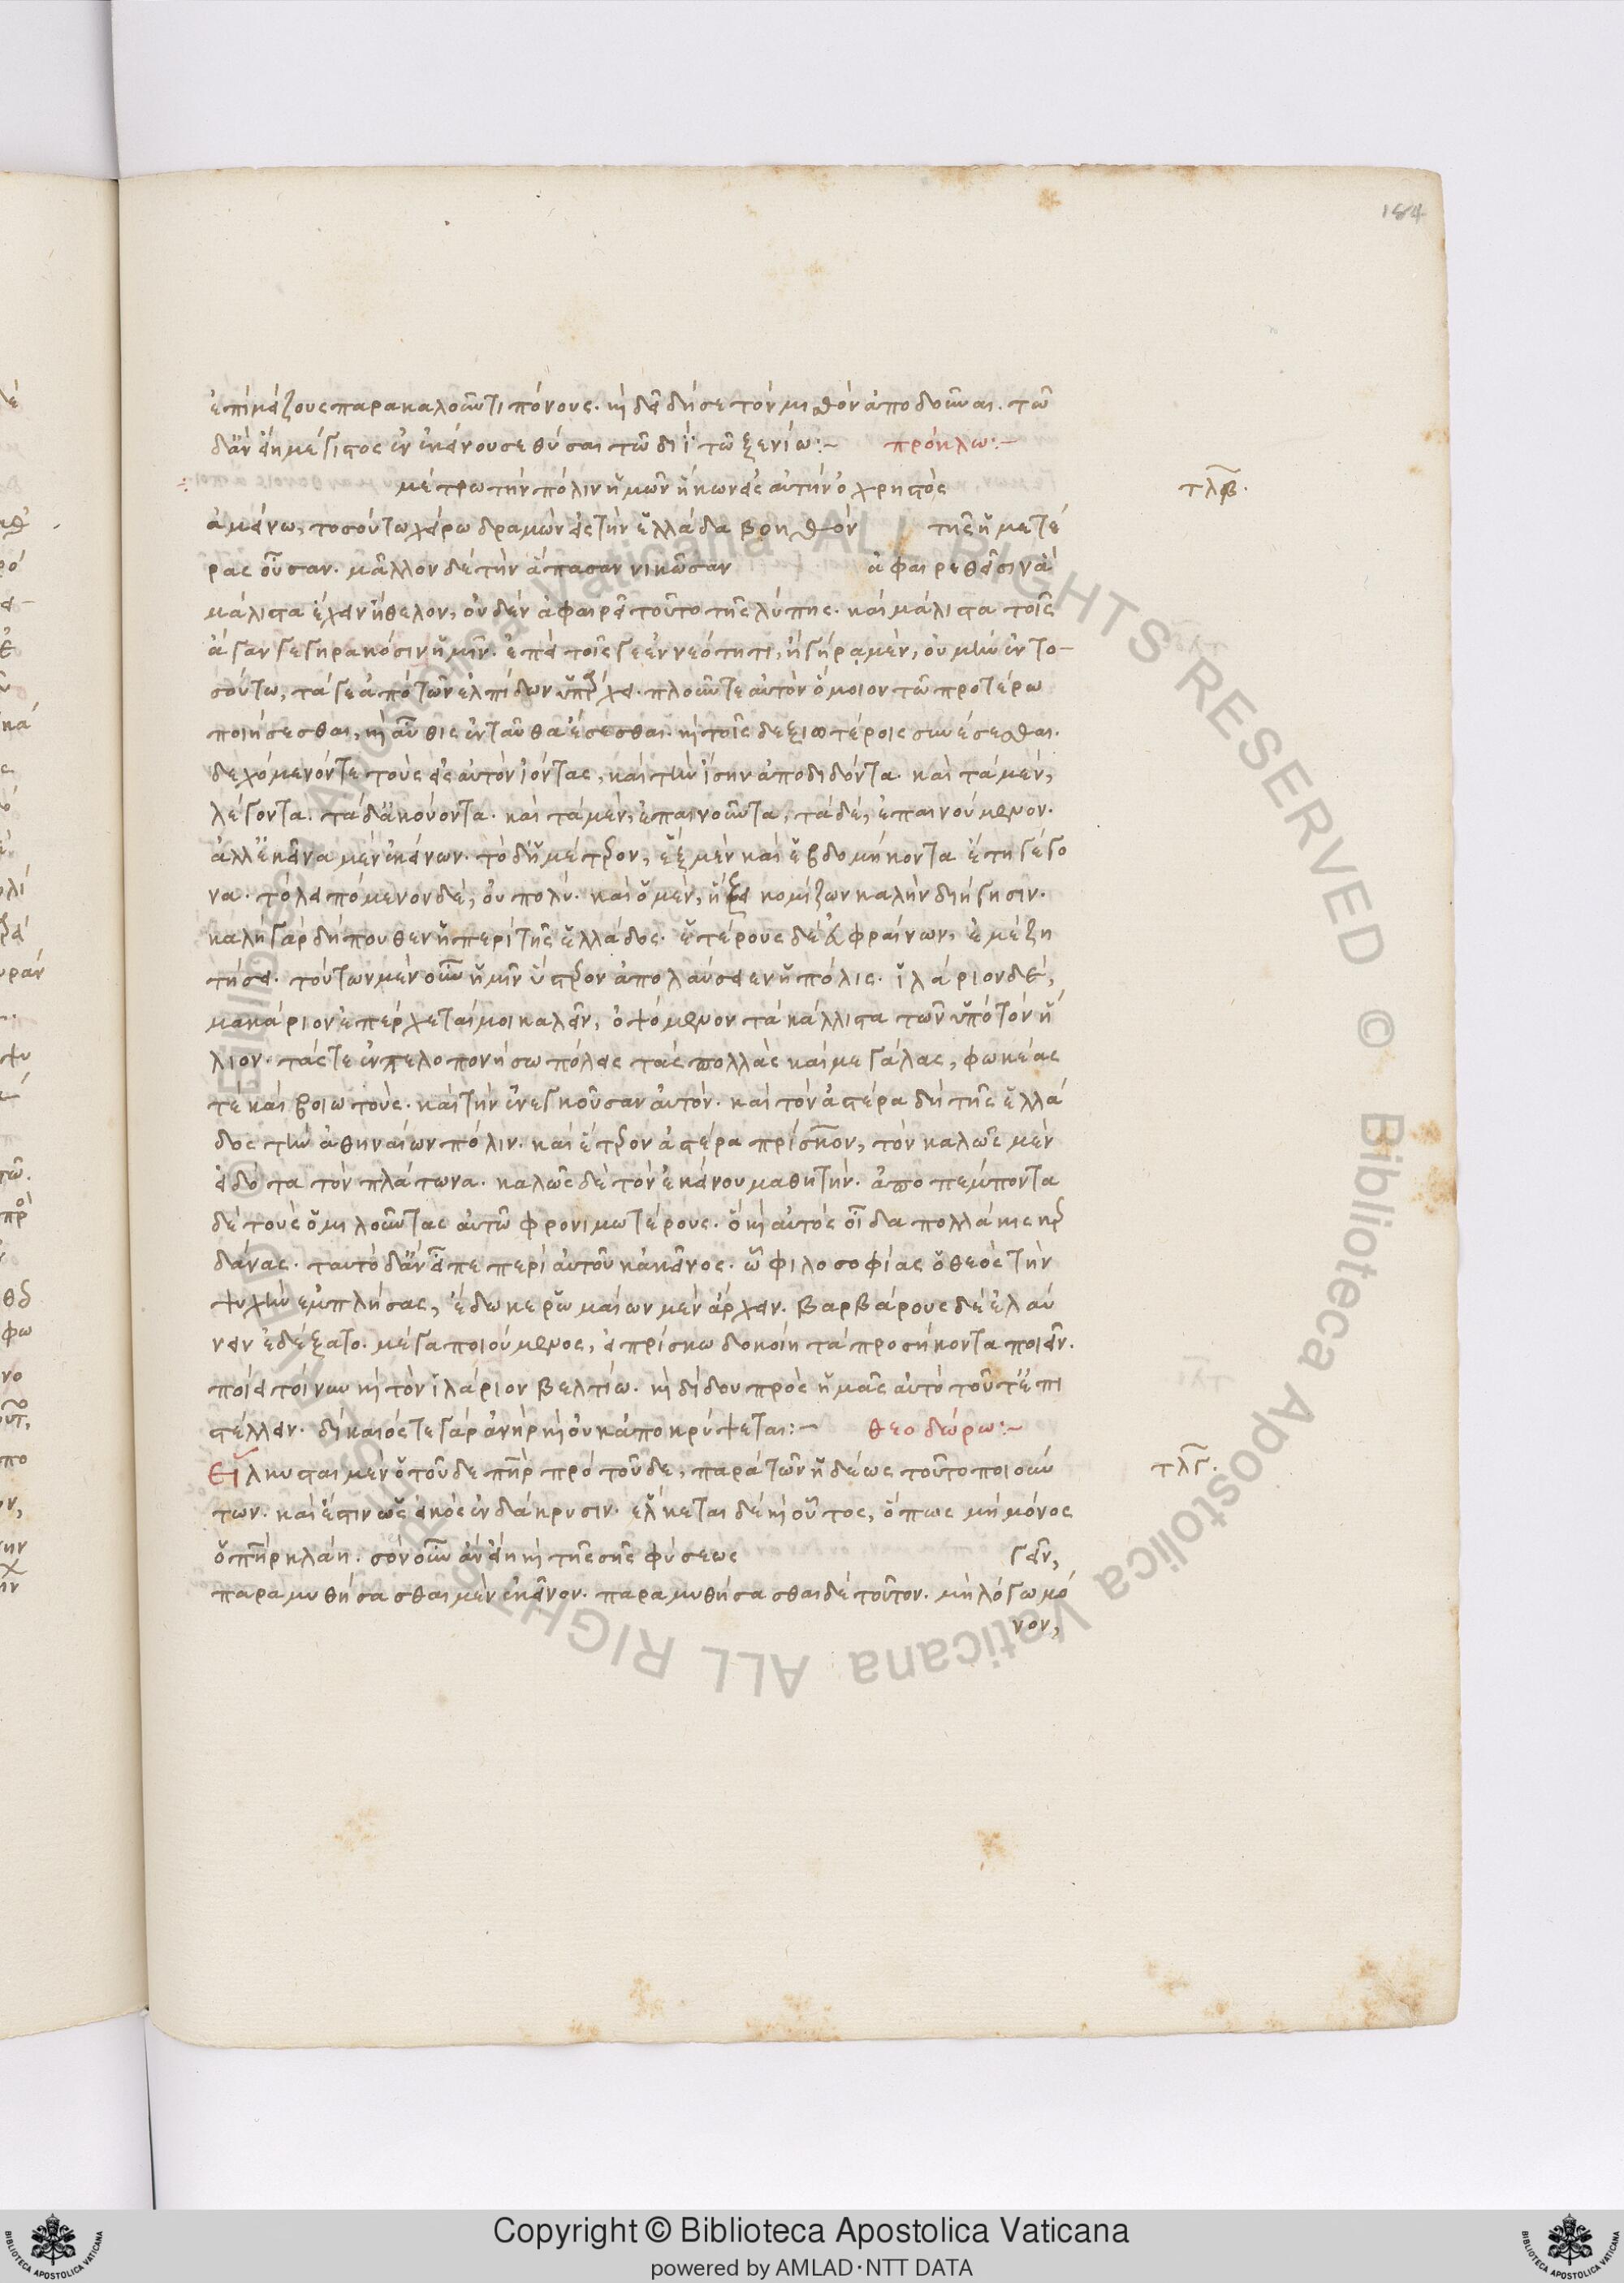 184
ἐπὶ μείζους παρακαλοῦντι πόνους. καὶ δεῖ δή σε τὸν μισθὸν ἀποδοῦναι. τῶ
δ' ἂν εἴη μέγιστος ἐν ἐκείνου σε θύσαι τῶ διῒ τῶ ξενίω:~ πρόκλω:~
μέτρω τὴν πόλιν ἡμῶν ἥκων εἰς αὐτὴν ὁ χρηστὸς τλβ.
ἀμείνω, τοσούτω χείρω δραμὼν εἰς τὴν ἑλλάδα βοηθὸν τῆς ἡμετέ
ρας οὖσαν. μᾶλλον δὲ τὴν ἅπασαν νικῶσαν ἀφαιρεθεῖσιν ἃ
μάλιστα ἔχειν ἤθελον, οὐδὲν ἀφαιρεῖ τοῦτο τῆς λύπης. καὶ μάλιστα τοῖς
ἄγαν γεγηρακόσιν ἡμῖν. ἐπεὶ τοῖς γε ἐν νεότητι, ἢ γήρα μὲν, οὐ μὴν ἐν το-
σούτω, τά γε ἀπὸ τῶν ἐλπίδων ὑπάρχει. πλοῦν τε αὐτὸν ὅμοιον τῶ προτέρω
ποιήσεσθαι, καὶ αὖθις ἐνταῦθα ἔσεσθαι. καὶ τοῖς δεξιωτέροις συνέσεσθαι.
δεχόμενόν τε τοὺς εἰς αὐτὸν ἰόντας, καὶ τὴν ἴσην ἀποδιδόντα. καὶ τὰ μὲν,
λέγοντα. τὰ δ' ἀκούοντα. καὶ τὰ μὲν, ἐπαινοῦντα, τὰ δὲ, ἐπαινούμενον.
ἀλλ' ἐκεῖνα μὲν ἐκείνων. τὸ δ' ἡμέτερον, ἓξ μὲν καὶ ἑβδομήκοντα ἔτη γέγο
να. τὸ λειπόμενον δὲ, οὐ πολύ. καὶ ὁ μὲν, ἥξει κομίζων καλὴν διήγησιν.
καλὴ γὰρ δήπουθεν ἡ περὶ τῆς ἑλλάδος. ἑτέρους δὲ εὐφραίνων, ἐμὲ ζη
τήσει. τούτων μὲν οὖν ἡμῖν ὕστερον ἀπολαύσειεν ἡ πόλις. ἱλάριον δὲ,
μακάριον ἐπέρχεταί μοι καλεῖν, ὀψόμενον τὰ κάλλιστα τῶν ὑπὸ τὸν ἥ
λιον. τάς τε ἐν πελοπονήσω πόλεις τὰς πολλὰς καὶ μεγάλας, φωκέας
τὲ καὶ βοιωτούς. καὶ τὴν ἐνεγκοῦσαν αὐτόν. καὶ τὸν ἀστέρα δὴ τῆς ἑλλά
δος τὴν ἀθηναίων πόλιν. καὶ ἕτερον ἀστέρα πρίσκον, τὸν καλῶς μὲν
εἰδότα τὸν πλάτωνα. καλῶς δὲ τὸν ἐκείνου μαθητήν. ἀποπέμποντα
δὲ τοὺς ὁμιλοῦντας αὐτῶ φρονιμωτέρους. ὃ καὶ αὐτὸς οἶδα πολλάκις κερ
δάνας. ταυτὸ δ' ἂν εἶπε περὶ αὐτοῦ κἀκεῖνος. ὧ φιλοσοφίας ὁ θεὸς τὴν
ψυχὴν ἐμπλήσας, ἔδωκε ῥωμαίων μὲν ἄρχειν. βαρβάρους δὲ ἐλαύ
νειν ἐδέξατο. μέγα ποιούμενος, εἰ πρίσκω δοκοίη τὰ προσήκοντα ποιεῖν.
ποίει τοίνυν καὶ τὸν ἱλάριον βελτίω. καὶ δίδου πρὸς ἡμᾶς αὐτὸ τοῦτ' ἐπι
στέλλειν. δίκαιός τε γὰρ ἀνὴρ καὶ οὐκ ἀποκρύψεται:~ θεοδώρω:~
Εἵλκυσται μὲν ὁ τοῦδε πατὴρ πρὸ τοῦδε, παρὰ τῶν ἡδέως τοῦτο ποιούν τλγ.
των. καὶ ἔστιν ὡς εἰκὸς ἐν δάκρυσιν. ἕλκεται δὲ καὶ οὗτος, ὅπως μὴ μόνος
ὁ πατὴρ κλάῃ. σὸν οὖν ἂν εἴη καὶ τῆς σῆς φύσεως γεῖν,
παραμυθήσασθαι μὲν ἐκεῖνον. παραμυθήσασθαι δὲ τοῦτον. μὴ λόγω μό
νον,
Copyright © Biblioteca Apostolica Vaticana
powered by AMLAD·NTT DATA